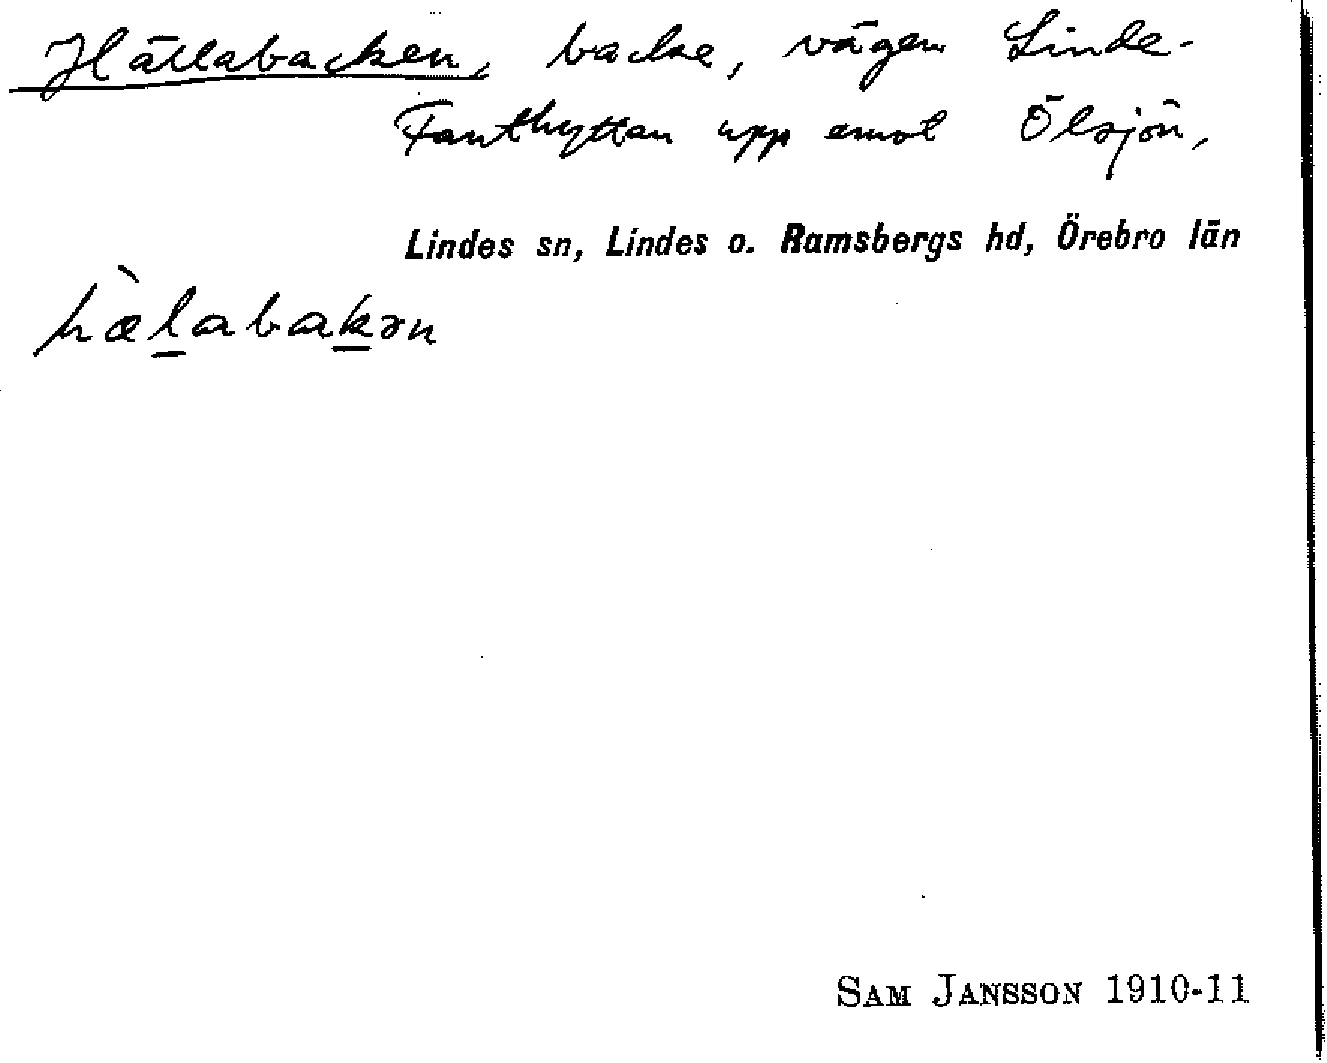 Hällabacken, backe, vägen Linde-
Fanthyttan upp emot Ölsjön,
Lindes sn, Lindes o. Ramsbergs hd, Örebro län
hæ̀l̲abak̲ən
SAM JANSSON 1910-11